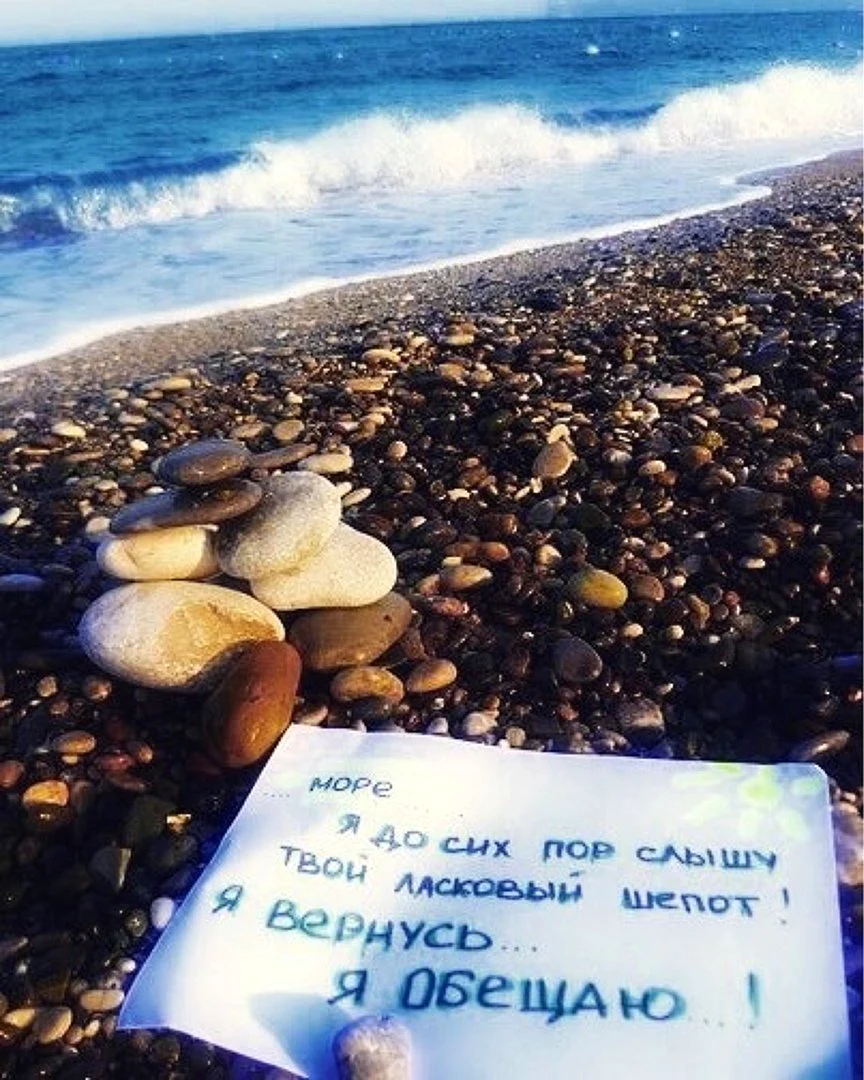 .... море ...
я до сих пор слышу
твой ласковый шепот!
я вернусь...
я обещаю...!